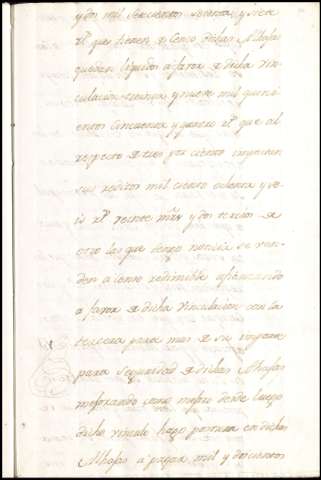 y dos mil seiscientos setenta y seis
r.s que tienen de Censo dichas Alhajas
quedan liquidos a favor de dicha vin-
culacion treinta y nueve mil quini-
entos cincuenta y quatro r.s que al
respecto de tres por ciento importan
sus reditos mil ciento ochenta y se-
is r.s veinte mrs y dos tercios de
otro las que tengo noticia se ven-
den a censo redimible afianzando
a favor de dicha vinculacion con la
tercera parte mas de su importe
para seguridad de dichas Alhajas
mejorando como mejoro desde luego
dicho vinculo hago postura en dichas
Alhajas a pagar mil y doscientos